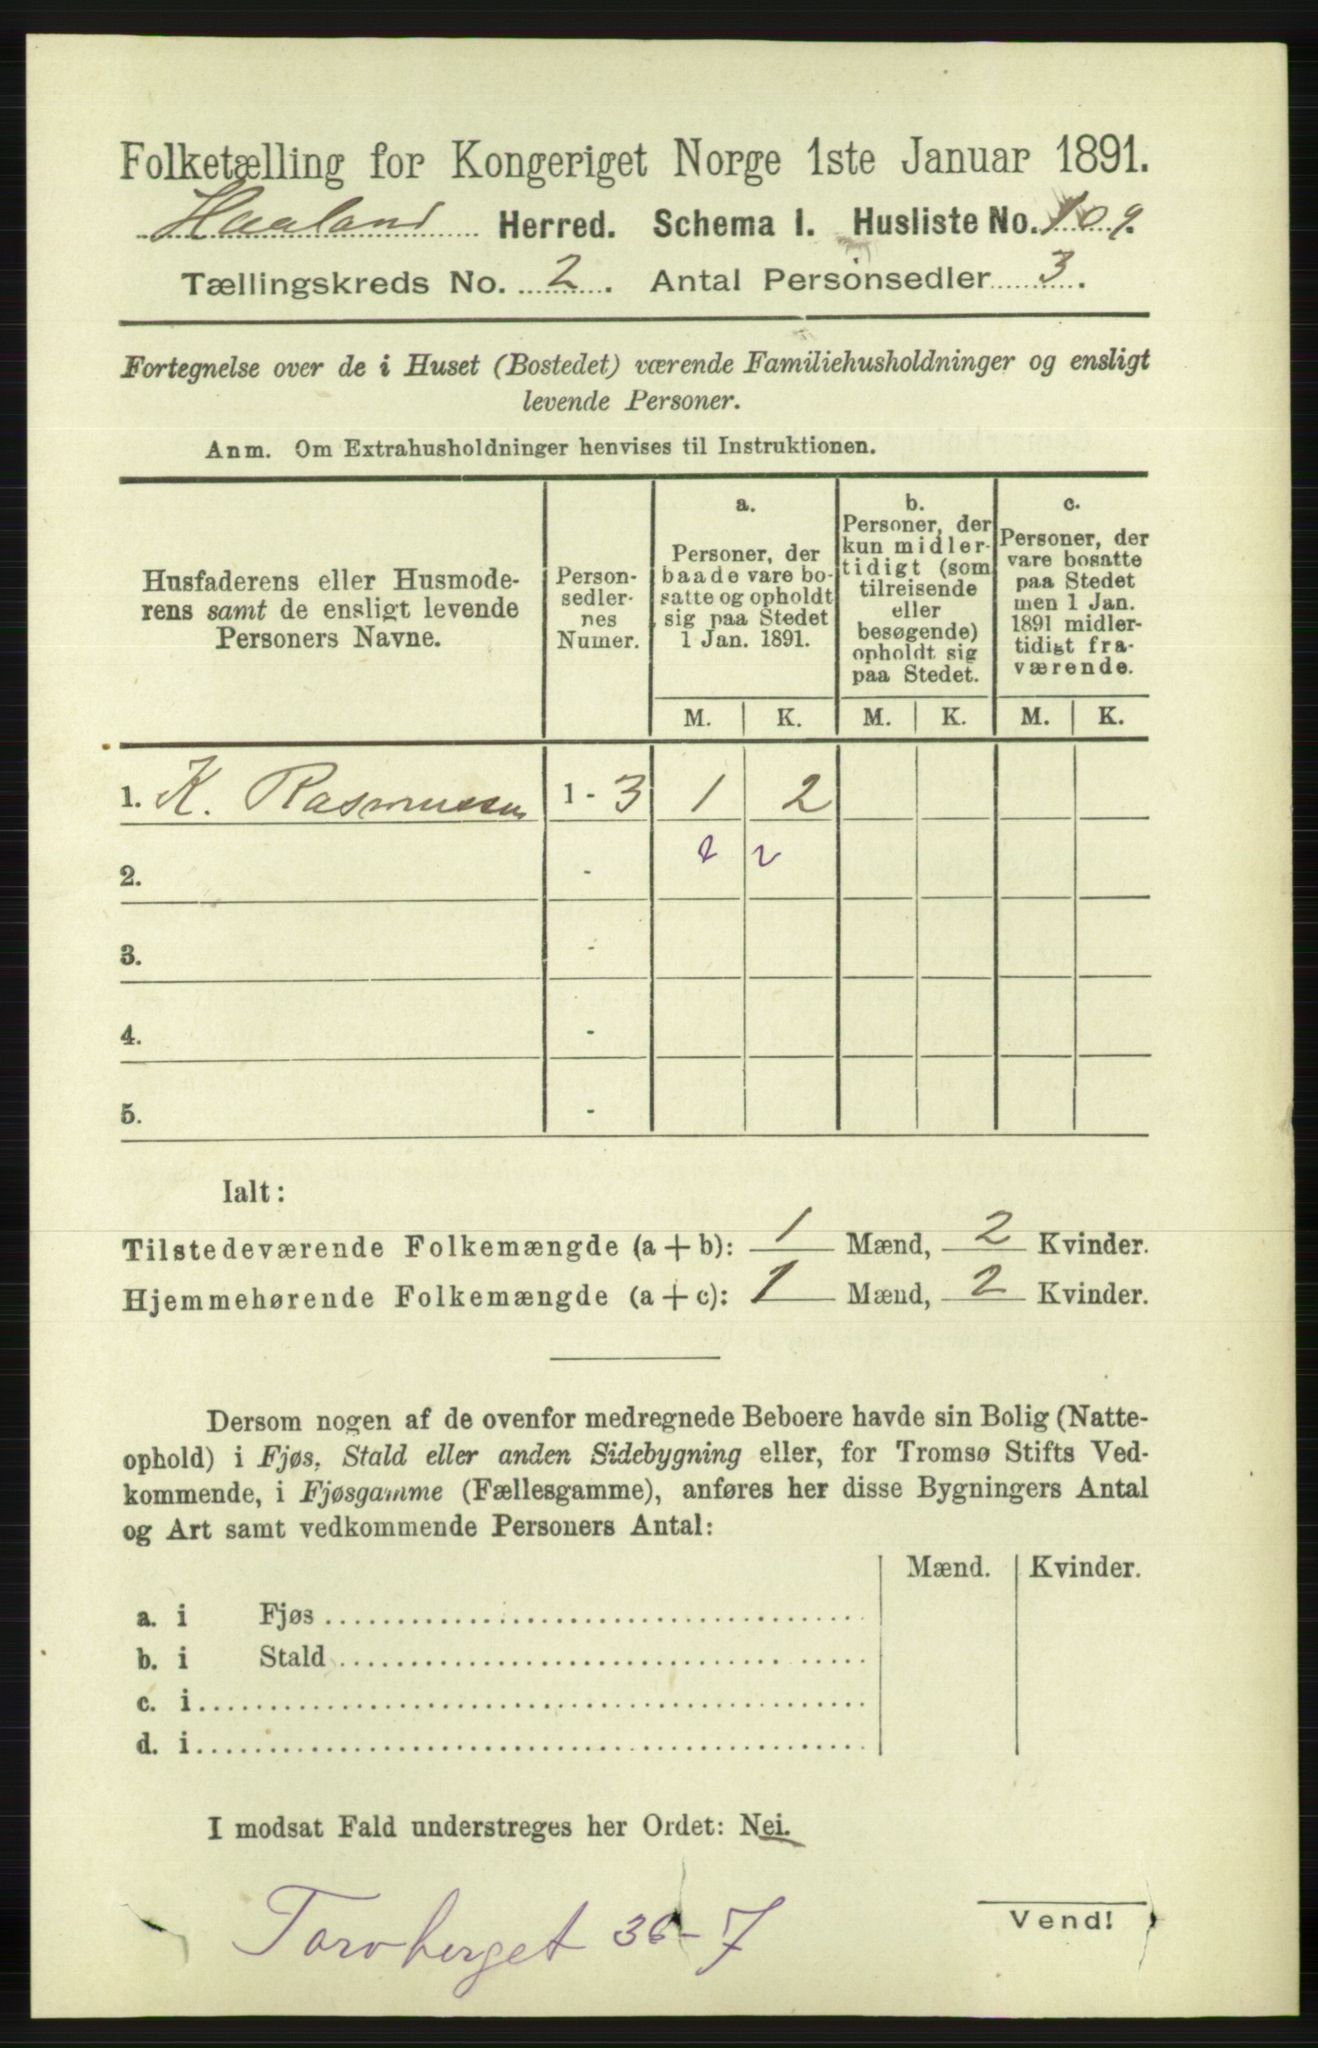 Folketælling for Kongeriget Norge 1ste Januar 1891.
Haaland Herred. Schema I. Husliste No. 109.
Tællingskreds No. 2. Antal Personsedler 3.
Fortegnelse over de i Huset (Bostedet) værende Familiehusholdninger og ensligt
levende Personer.
Anm. Om Extrahusholdninger henvises til Instruktionen.
Husfaderens eller Husmode-
rens samt de ensligt levende
Personers Navne.
Person-
sedler-
nes
Numer.
a.
Personer, der
baade vare bo-
satte og opholdt
sig paa Stedet
1 Jan. 1891.
b.
Personer, der
kun midler-
tidigt (som
tilreisende
eller
besøgende)
opholdt sig
paa Stedet.
c.
Personer, der
vare bosatte
paa Stedet
men 1 Jan.
1891 midler-
tidigt fra-
værende.
M. K. M. K. M. K.
1. K. Rasmussen 1 - 3 1 2
2. - 2
3. -
4. -
5. -
Ialt:
Tilstedeværende Folkemængde (a + b): 1 Mænd, 2 Kvinder.
Hjemmehørende Folkemængde (a + c): 1 Mænd, 2 Kvinder.
Dersom nogen af de ovenfor medregnede Beboere havde sin Bolig (Natte-
ophold) i Fjøs, Stald eller anden Sidebygning eller, for Tromsø Stifts Ved-
kommende, i Fjøsgamme (Fællesgamme), anføres her disse Bygningers Antal
og Art samt vedkommende Personers Antal:
Mænd. Kvinder.
a. i Fjøs
b. i Stald
c. i
d. i
I modsat Fald understreges her Ordet: Nei.
Torvberget 36-7
Vend!